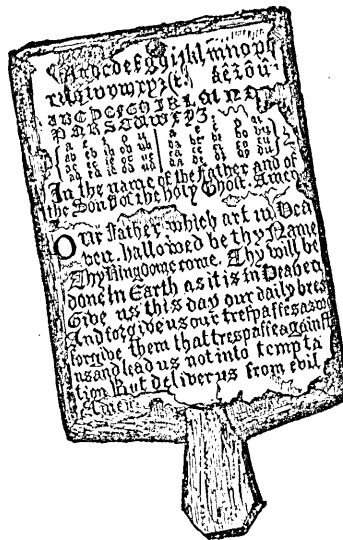 Aabcdefghijklmnopq
rsstuvwxyz &. áéíóú
ABCDEFGHIJKLMNO
PQRSTUWXYZ
a e i o u | a e i o u
ab eb ib ob ub | ba be bi bo bu
ac ec ic oc uc | ca ce ci co cu
ad ed id od ud | da de di do du
In the name of the Father and of
the Son & of the Holy Ghost. Amen
Our Father, which art in Hea
ven, hallowed be thy Name
Thy Kingdome come, Thy will be
done in Earth as it is in Heaven
Give us this day our daily brea
And forgive us our trespasses as w
forgive them that trespasse against
us and lead us not into tempta
tion But deliver us from evil
Amen